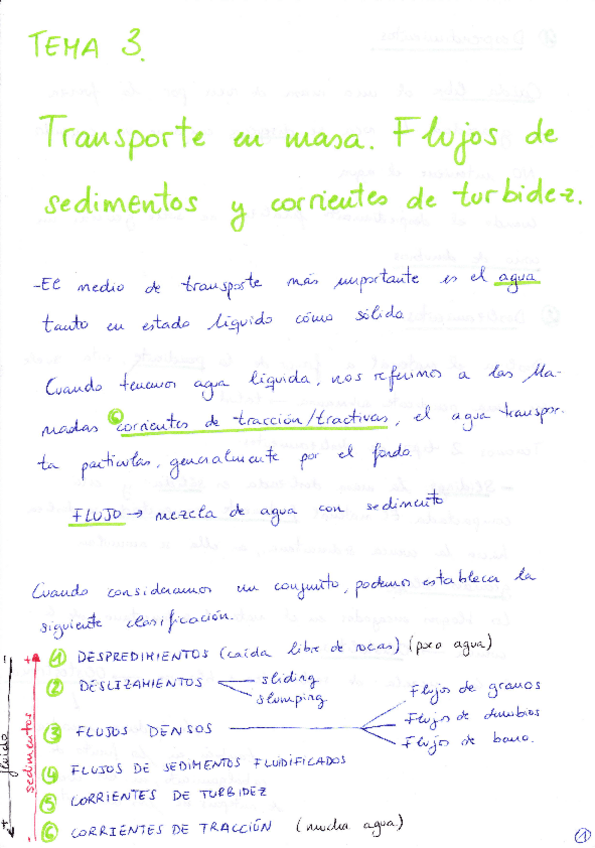 TEMA 3.
Transporte en masa. Flujos de
sedimentos y corrientes de turbidez.
-El medio de transporte más importante es el agua
tanto en estado líquido cómo sólido.
Cuando tenemos agua líquida, nos referimos a las lla-
madas ⑥ corrientes de tracción/tractivas, el agua transpor-
ta partículas, generalmente por el fondo.
FLUJO → mezcla de agua con sedimento
Cuando consideramos un conjunto, podemos establecer la
siguiente clasificación.
① DESPREDIMIENTOS (caída libre de rocas) (poco agua)
② DESLIZAMIENTOS
sliding
slumping
③ FLUJOS DENSOS
Flujos de granos
Flujos de derrubios
Flujos de barro.
④ FLUJOS DE SEDIMENTOS FLUIDIFICADOS
⑤ CORRIENTES DE TURBIDEZ
⑥ CORRIENTES DE TRACCIÓN (mucha agua)
- fluido +
+ sedimentos -
①